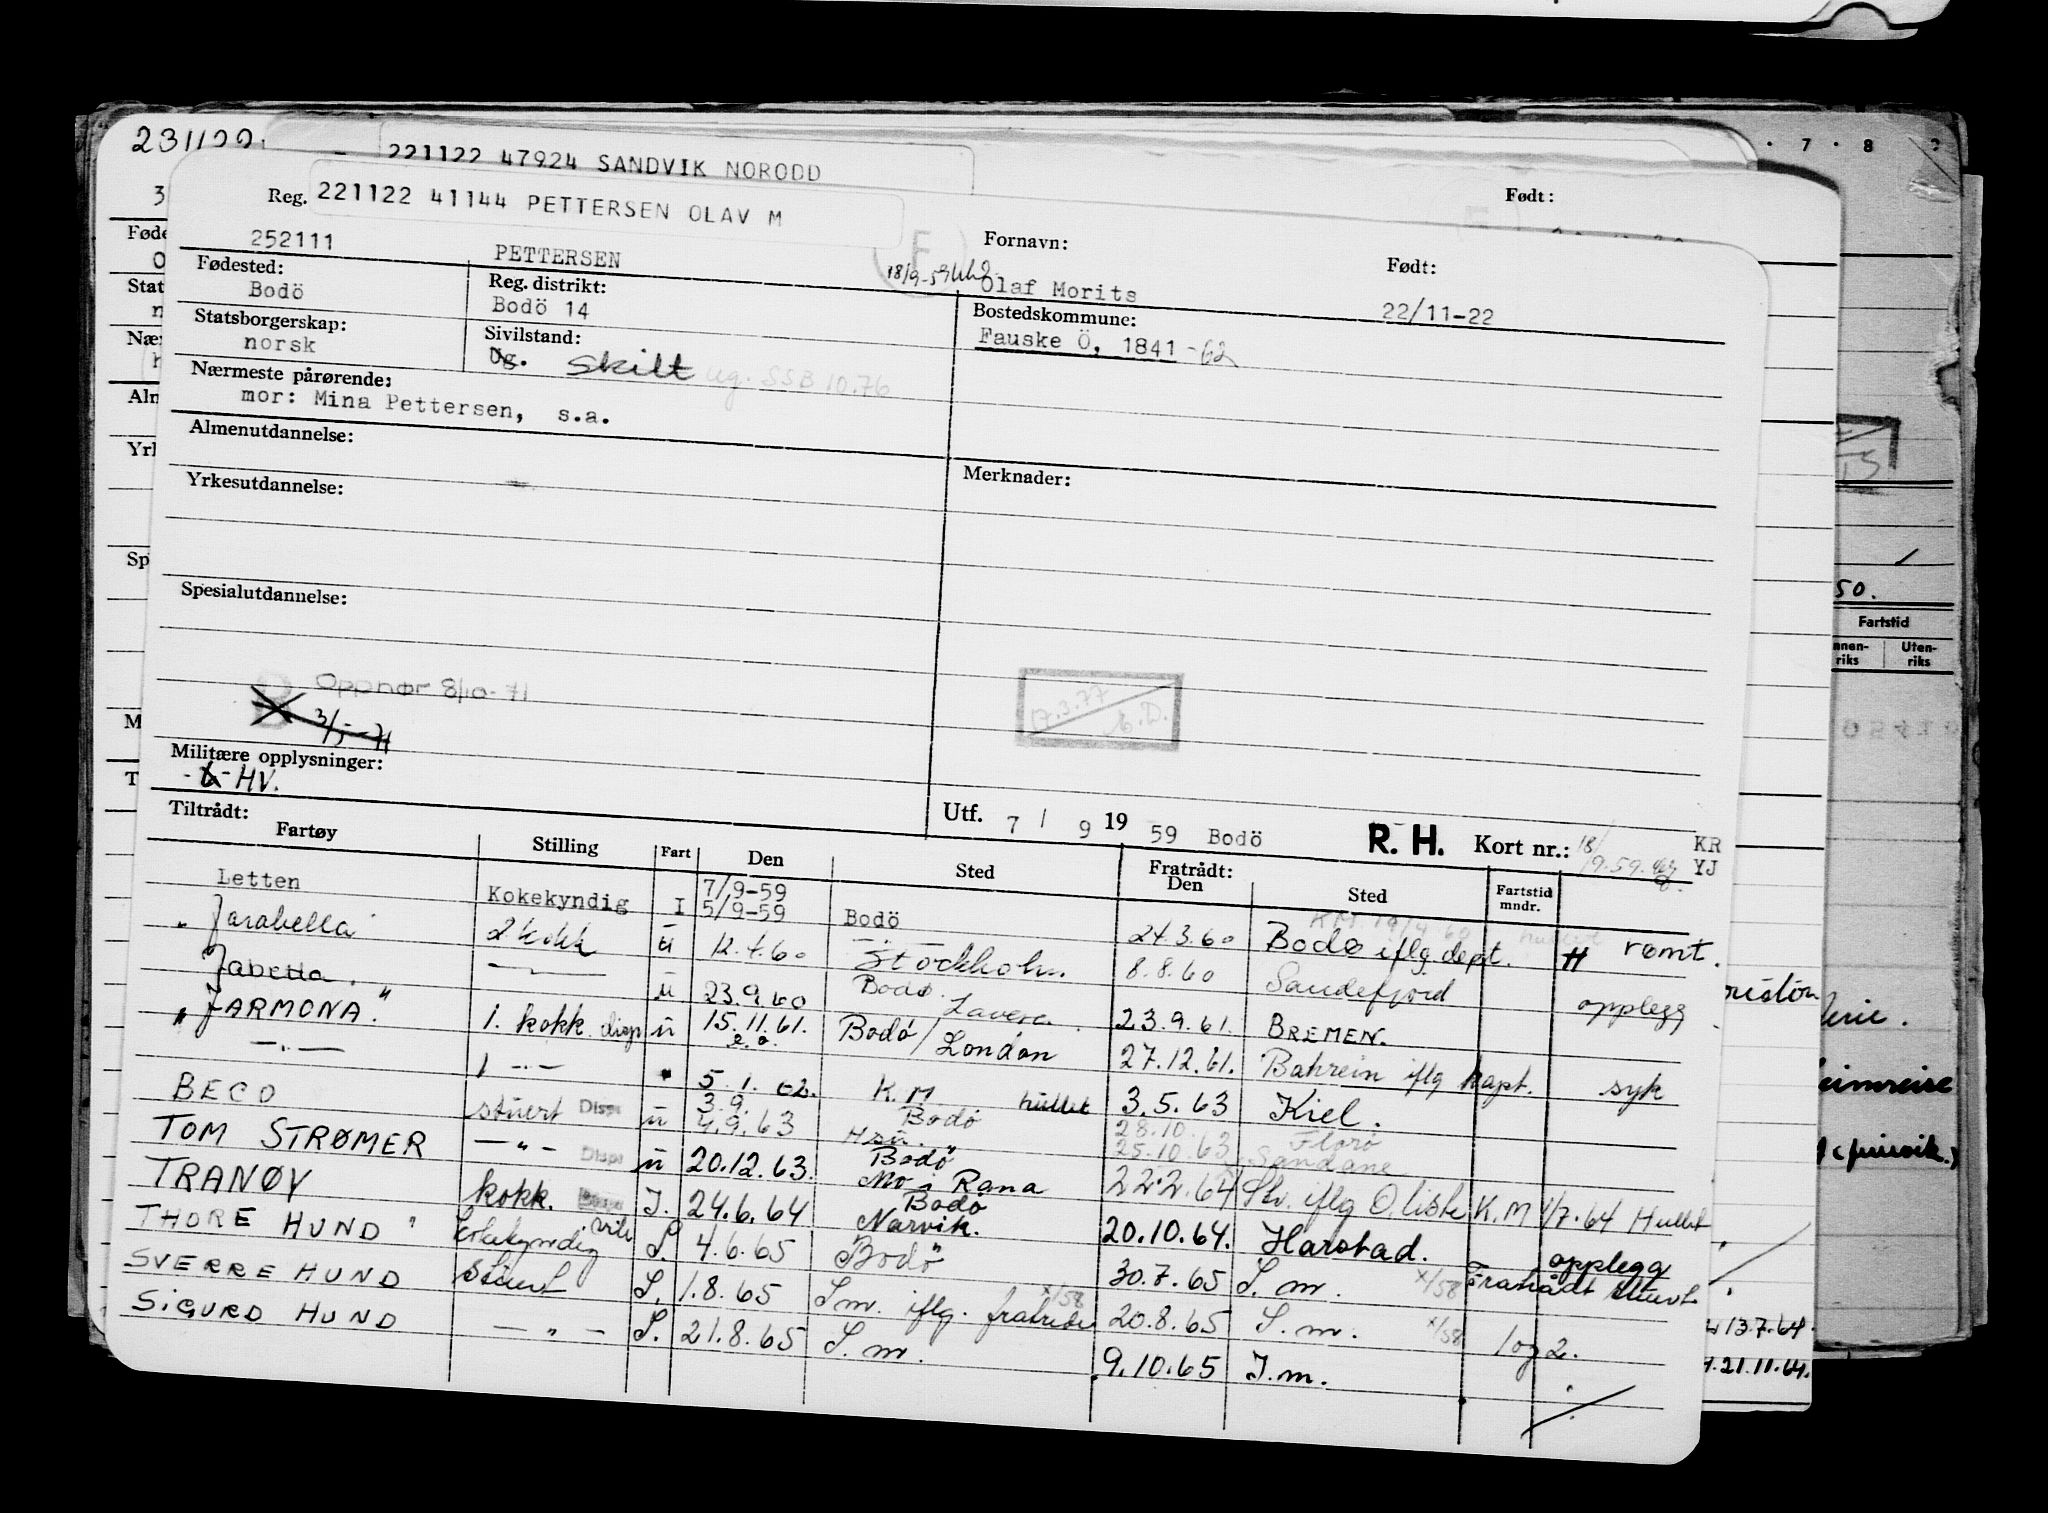 231122
221122 47924 SANDVIK NORODD
Født:
Reg. 221122 41144 PETTERSEN OLAV M
252111 PETTERSEN
Fornavn: Født:
18/9-59 Olaf Morits 22/11-22
Fødested: Reg. distrikt: Bostedskommune:
Bodö Bodö 14 Fauske Ö, 1841 -62
Statsborgerskap: Sivilstand:
norsk Ug. Skilt ug. SSB 10.76
Nærmeste pårørende:
mor: Mina Pettersen, s.a.
Almenutdannelse:
Yrkesutdannelse: Merknader:
Spesialutdannelse:
Oppnør 8/10-71
3/5-71
17.3.77
Militære opplysninger:
HV.
Tiltrådt: Utf. 7 / 9 19 59 Bodö R. H. Kort nr.: 18/9.59. KR YJ
Fartøy Stilling Fart Den Sted Fratrådt: Den Sted Fartstid mndr.
Letten Kokekyndig I 7/9-59 5/9-59 Bodö 24.3.60 Bodø iflg dept. H rømt.
" Jarabella 2 kokk ü 12.4.60 Stockholm. 8.8.60 Sandefjord opplegg
Jabetta " — " — ü 23.9.60 Bodø / Lavera 23.9.61. BREMEN.
" JARMONA " 1. kokk disp ü 15.11.61. e.o. Bodø/London 27.12.61. Bahrein iflg kapt. syk
— " — 1 — " — 5.1.62. K.M hullet 3.5.63 Kiel.
BECO stuert Disp ü 3.9. 4.9.63 Bodø 28.10. 25.10.63 Florø Sandane
TOM STRØMER — " — Disp ü 20.12.63. Bodø Mo i Rana 22.2.64 Sv. iflg O.liste K.M 1/7.64 Hullet
TRANØY kokk. I. 24.6.64 Bodø Narvik. 20.10.64. Harstad. opplegg
THORE HUND " kokekyndig vik S. 4.6.65 Bodø 30.7.65 S.m. x/58 Fratrådt stuert
SVERRE HUND Stuert S. 1.8.65 S.m. iflg. fratreden x/58 20.8.65 S.m. x/58 log 2.
SIGURD HUND — " — S. 21.8.65 S.m. 9.10.65 I.m.
7 8
50.
Fartstid
Innen-riks Uten-riks
13.7.64.
21.11.64.